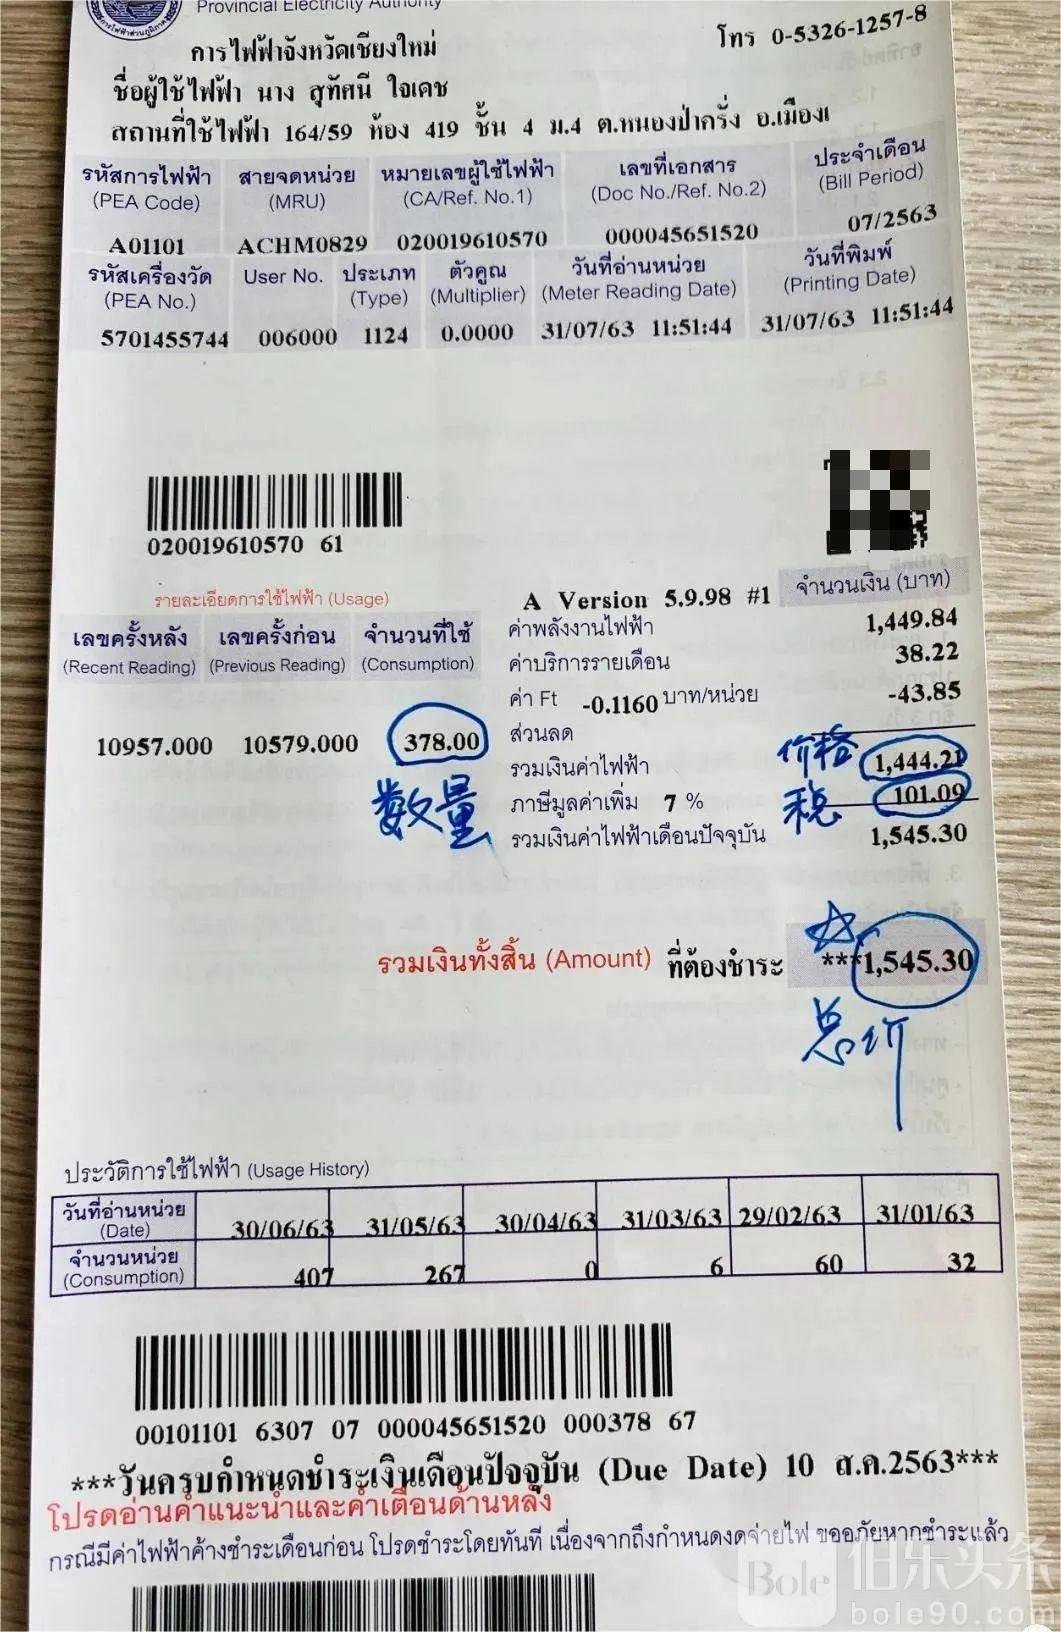 Provincial Electricity Authority
การไฟฟ้าจังหวัดเชียงใหม่
โทร 0-5326-1257-8
ชื่อผู้ใช้ไฟฟ้า นาง สุทัศนี ใจเดช
สถานที่ใช้ไฟฟ้า 164/59 ห้อง 419 ชั้น 4 ม.4 ต.หนองป่าครั่ง อ.เมืองเ
รหัสการไฟฟ้า สายจดหน่วย หมายเลขผู้ใช้ไฟฟ้า เลขที่เอกสาร ประจำเดือน
(PEA Code) (MRU) (CA/Ref. No.1) (Doc No./Ref. No.2) (Bill Period)
A01101 ACHM0829 020019610570 000045651520 07/2563
รหัสเครื่องวัด User No. ประเภท ตัวคูณ วันที่อ่านหน่วย วันที่พิมพ์
(PEA No.) (Type) (Multiplier) (Meter Reading Date) (Printing Date)
5701455744 006000 1124 0.0000 31/07/63 11:51:44 31/07/63 11:51:44
020019610570 61
รายละเอียดการใช้ไฟฟ้า (Usage)
A Version 5.9.98 #1 จำนวนเงิน (บาท)
เลขครั้งหลัง เลขครั้งก่อน จำนวนที่ใช้
(Recent Reading) (Previous Reading) (Consumption)
10957.000 10579.000 378.00
数量
ค่าพลังงานไฟฟ้า 1,449.84
ค่าบริการรายเดือน 38.22
ค่า Ft -0.1160 บาท/หน่วย -43.85
ส่วนลด
รวมเงินค่าไฟฟ้า 价格 1,444.21
ภาษีมูลค่าเพิ่ม 7 % 税 101.09
รวมเงินค่าไฟฟ้าเดือนปัจจุบัน 1,545.30
รวมเงินทั้งสิ้น (Amount) ที่ต้องชำระ ***1,545.30
总价
ประวัติการใช้ไฟฟ้า (Usage History)
วันที่อ่านหน่วย
(Date) 30/06/63 31/05/63 30/04/63 31/03/63 29/02/63 31/01/63
จำนวนหน่วย
(Consumption) 407 267 0 6 60 32
00101101 6307 07 000045651520 000378 67
***วันครบกำหนดชำระเงินเดือนปัจจุบัน (Due Date) 10 ส.ค.2563***
โปรดอ่านคำแนะนำและคำเตือนด้านหลัง
กรณีมีค่าไฟฟ้าค้างชำระเดือนก่อน โปรดชำระโดยทันที เนื่องจากถึงกำหนดงดจ่ายไฟ ขออภัยหากชำระแล้ว
Bole 伯乐头条
bole90.com